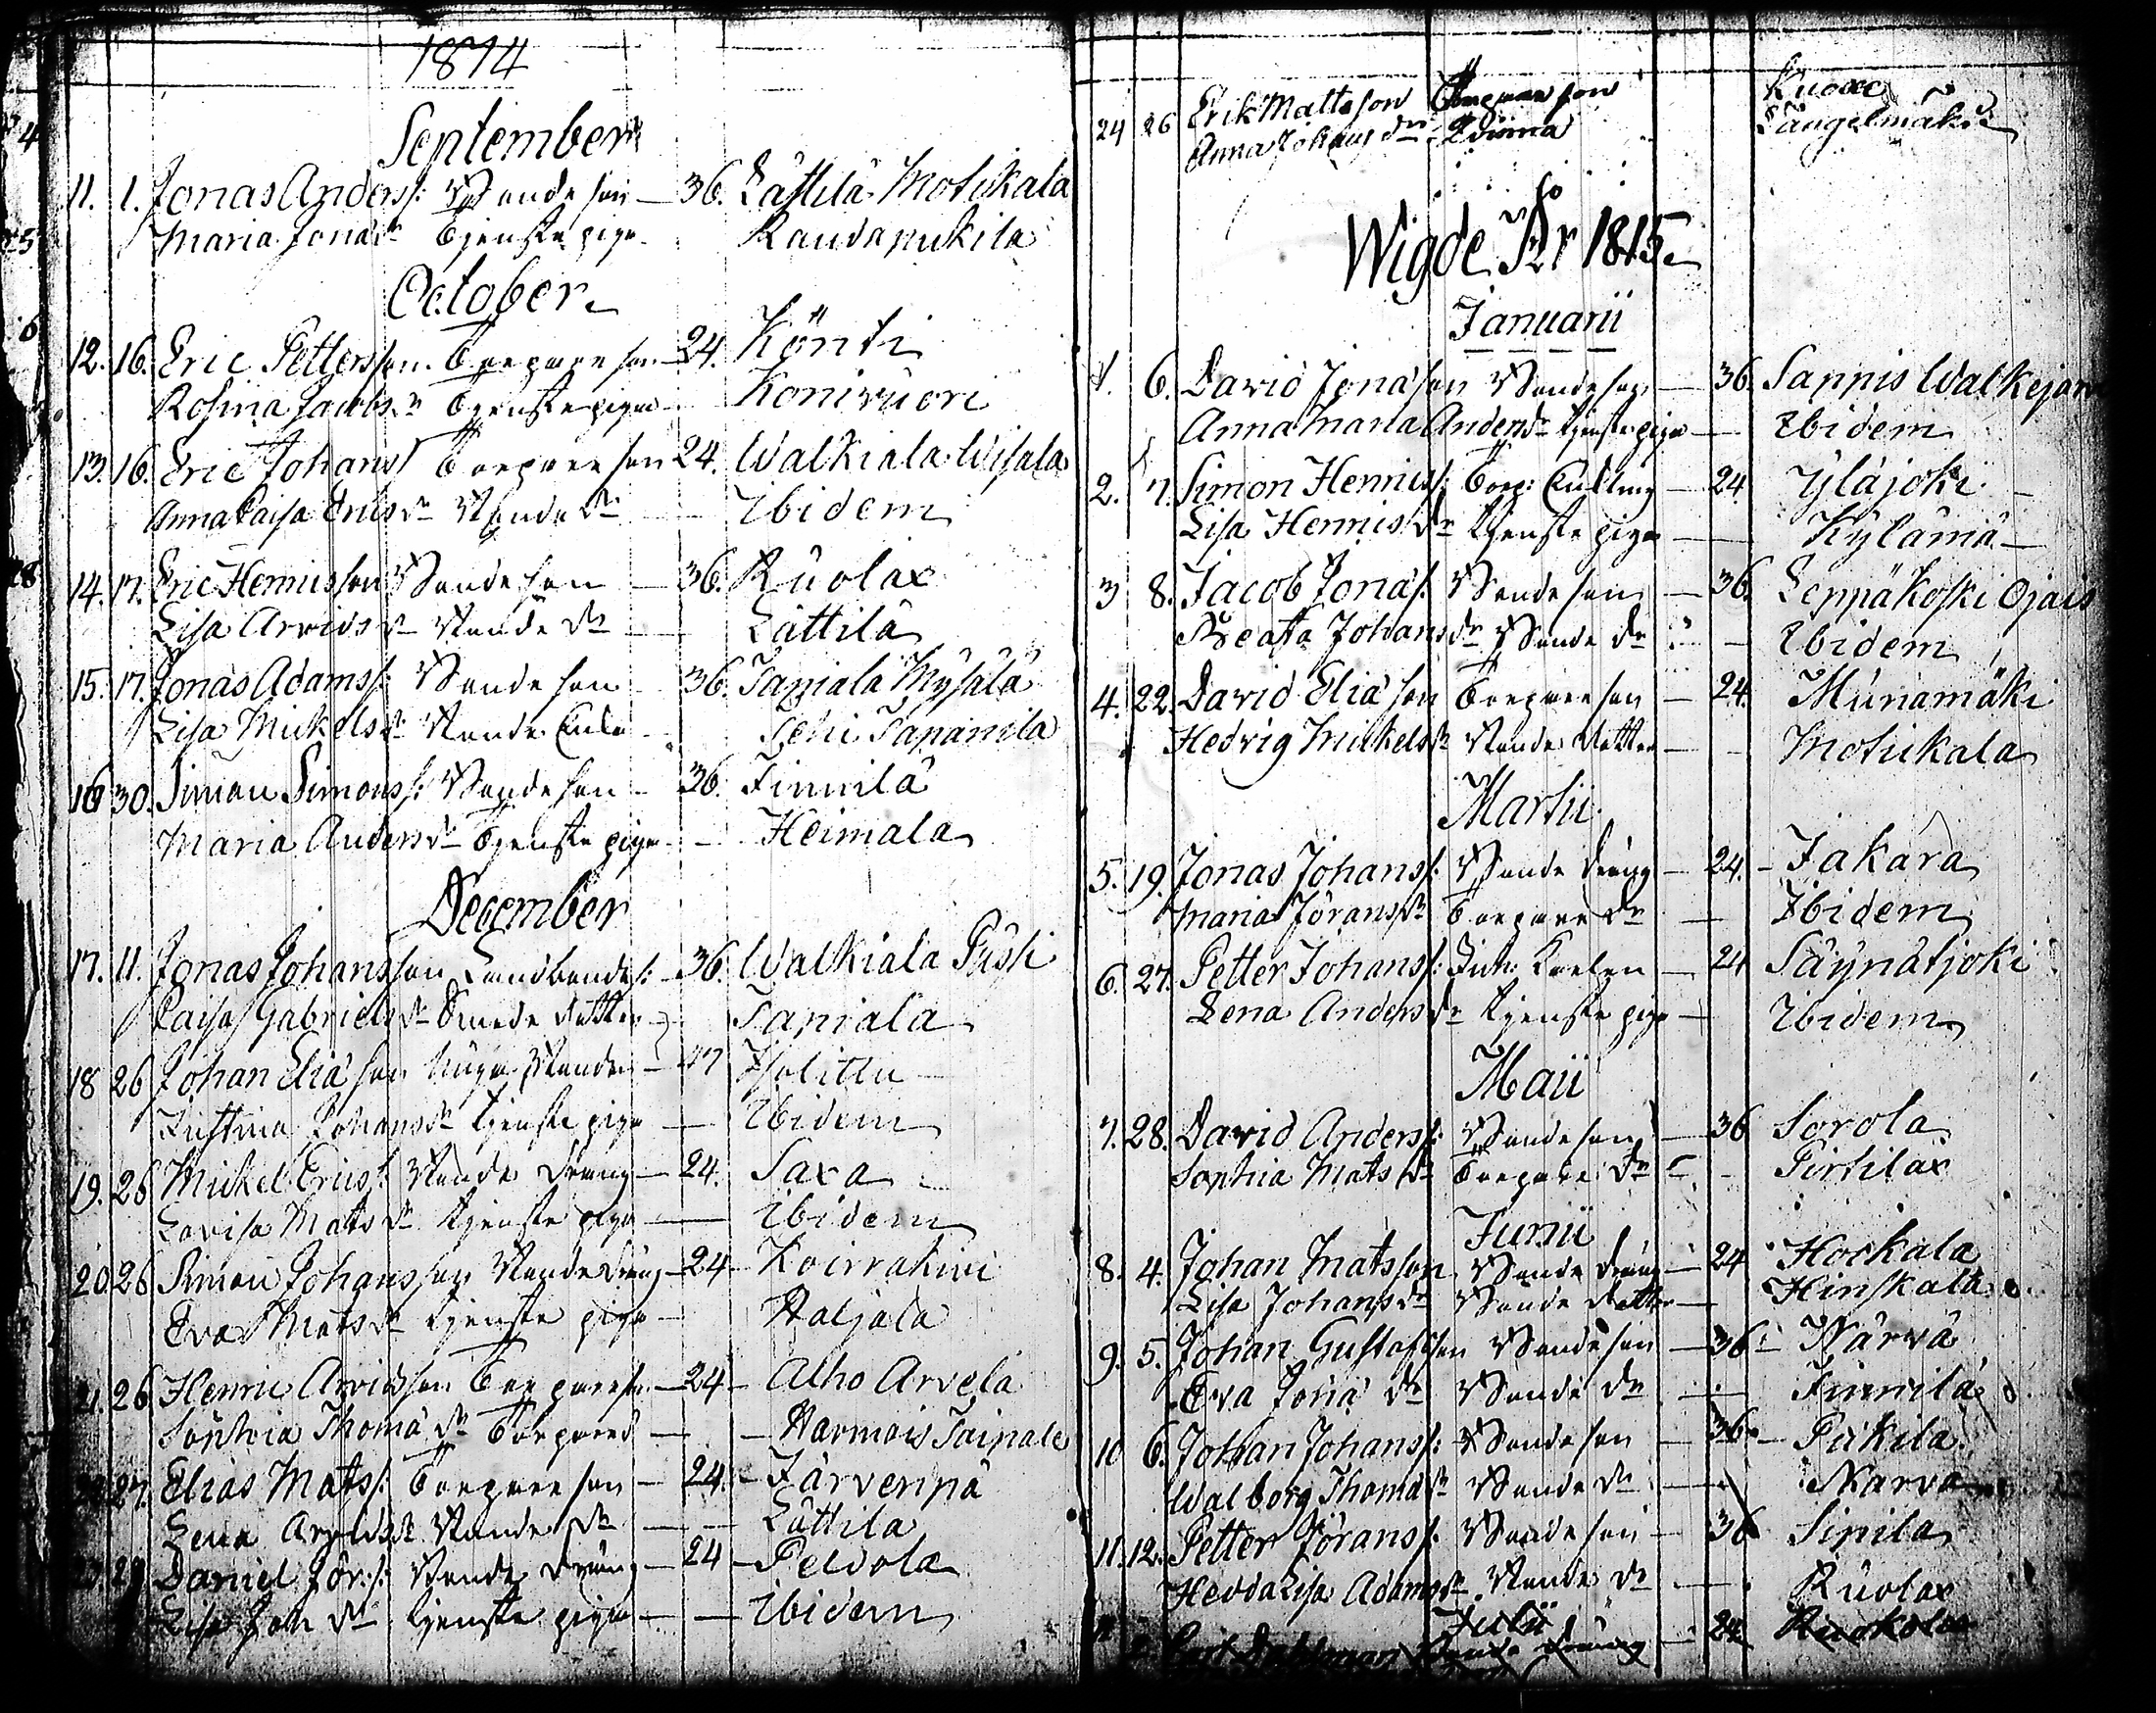 1814
September
11. 1. Jonas Anders: Bonde son 36. Lättilä Motukala
Maria Jonæ dr Tjenste piga Raudanukila
October
12. 16. Eric Pettersson Torpare son 24. Könti
Rosina Jacobs dr Tjenste piga Konivuori
13. 16. Eric Johans Torpare son 24. Walkiala Wisala
Anna Caisa Erics dr Bonde dr Ibidem
14. 17. Eric Henricsson Bonde son 36. Ruolax
Lisa Arvids dr Bonde dr Lättilä
15. 17. Jonas Adams: Bonde son 36. Taniala Mysälä
Lisa Mickels dr Bonde Enka Sehi Tapanila
16 30. Simon Simons: Bonde son 36. Finnilä
Maria Anders dr Tjenste piga Heimala
December
17. 11. Jonas Johansson Landbonde s: 36. Walkiala
Caisa Gabriels dr dotter Taniala
18 26 Johan Elia son Bonde
Johans dr tjenste piga Ibidem
19. 26 Mickel Erics: Bonde dräng 24. Saxa
Lovisa Mats dr tjenste piga Ibidem
20. 26 Simon Johansson Bonde dräng 24 Koirrakivi
Eva Mats dr tjenste piga Haljala
21. 26 Henric Arvidsson Torpare son 24 Alho Arvela
Sophia Thomæ dr Torpare d Harmois Tainale
27. Elias Mats: Torpare son 24. Järvenpä
Lena Arvids dr Bonde dr Lättilä
Daniel Jör: s: Bonde dräng 24 Pelvola
Lisa Joh dr tjenste piga Ibidem
24 26 Erik Mattsson Torpare son Kuoxe
Anna Johans dr Längelmäki
Wigde År 1815
Januarii
1. 6. David Jonæson Bonde son 36. Sappis Walkejärvi
Anna Maria Anders dr tjenste piga Ibidem
2. 7. Simon Henrics: Torp: Enkling 24 Yläjoki
Lisa Henrics dr tjenste piga Kylämä
3 8. Jacob Jonæ s: Bonde son 36. Leppäkoski Ojais
Beata Johans dr Bonde dr Ibidem
4. 22. David Eliæ son Torpare son 24. Munamäki
Hedvig Mickels dr Bonde dotter Motukala
Martii
5. 19. Jonas Johans: Bonde dräng 24. Jakara
Maria Jörans dr Torpare dr Ibidem
6. 27. Petter Johans: 24 Säynätjoki
Lena Anders dr tjenste piga Ibidem
Maii
7. 28. David Anders: Bonde son 36 Sorola
Sophia Mats dr Torpare dr Pirtilax
Junii
8. 4. Johan Matsson Bonde dräng 24 Horkala
Lisa Johans dr Bonde dotter Hinskala
9. 5. Johan Gustafsson Bonde son 36 Närvä
Eva Jonæ dr Bonde dr Finnilä
10 6. Johan Johans: Bonde son 36 Pukila
Walborg Thomæ dr Bonde dr Narva
11. 12. Petter Jörans: Bonde son 36 Sipila
Hedda Lisa Adams dr Bonde dr Ruolax
Julii
Carl Bonde dräng 24